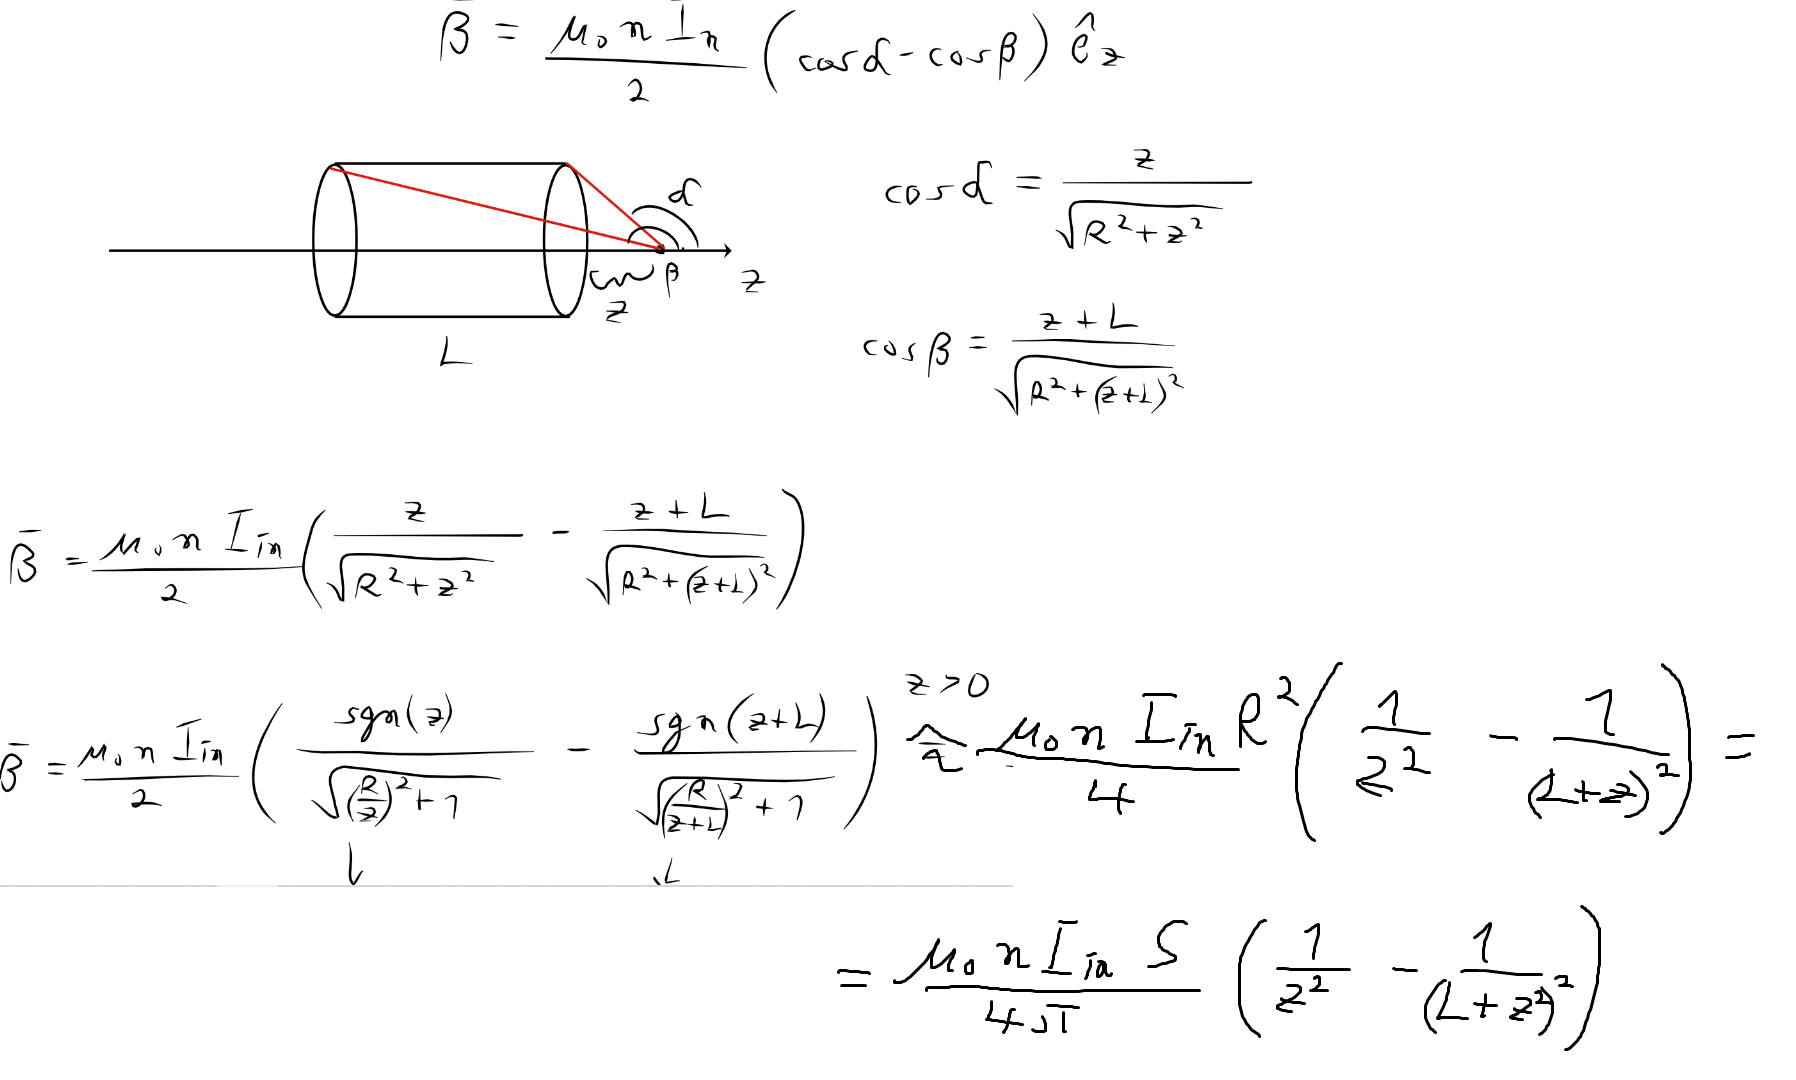 B̄ = μ₀ n Iₙ / 2 (cosα - cosβ) ê_z
α
β
z
z
L
cosα = z / √(R² + z²)
cosβ = z + L / √(R² + (z+L)²)
B̄ = μ₀ n I_in / 2 (z / √(R² + z²) - z + L / √(R² + (z+L)²))
B̄ = μ₀ n I_in / 2 (sgn(z) / √((R/z)² + 1) - sgn(z+L) / √((R/(z+L))² + 1)) z>0 ≈ μ₀ n I_in R² / 4 (1/z² - 1/(L+z)²) =
= μ₀ n I_in S / 4π (1/z² - 1/(L+z²)²)